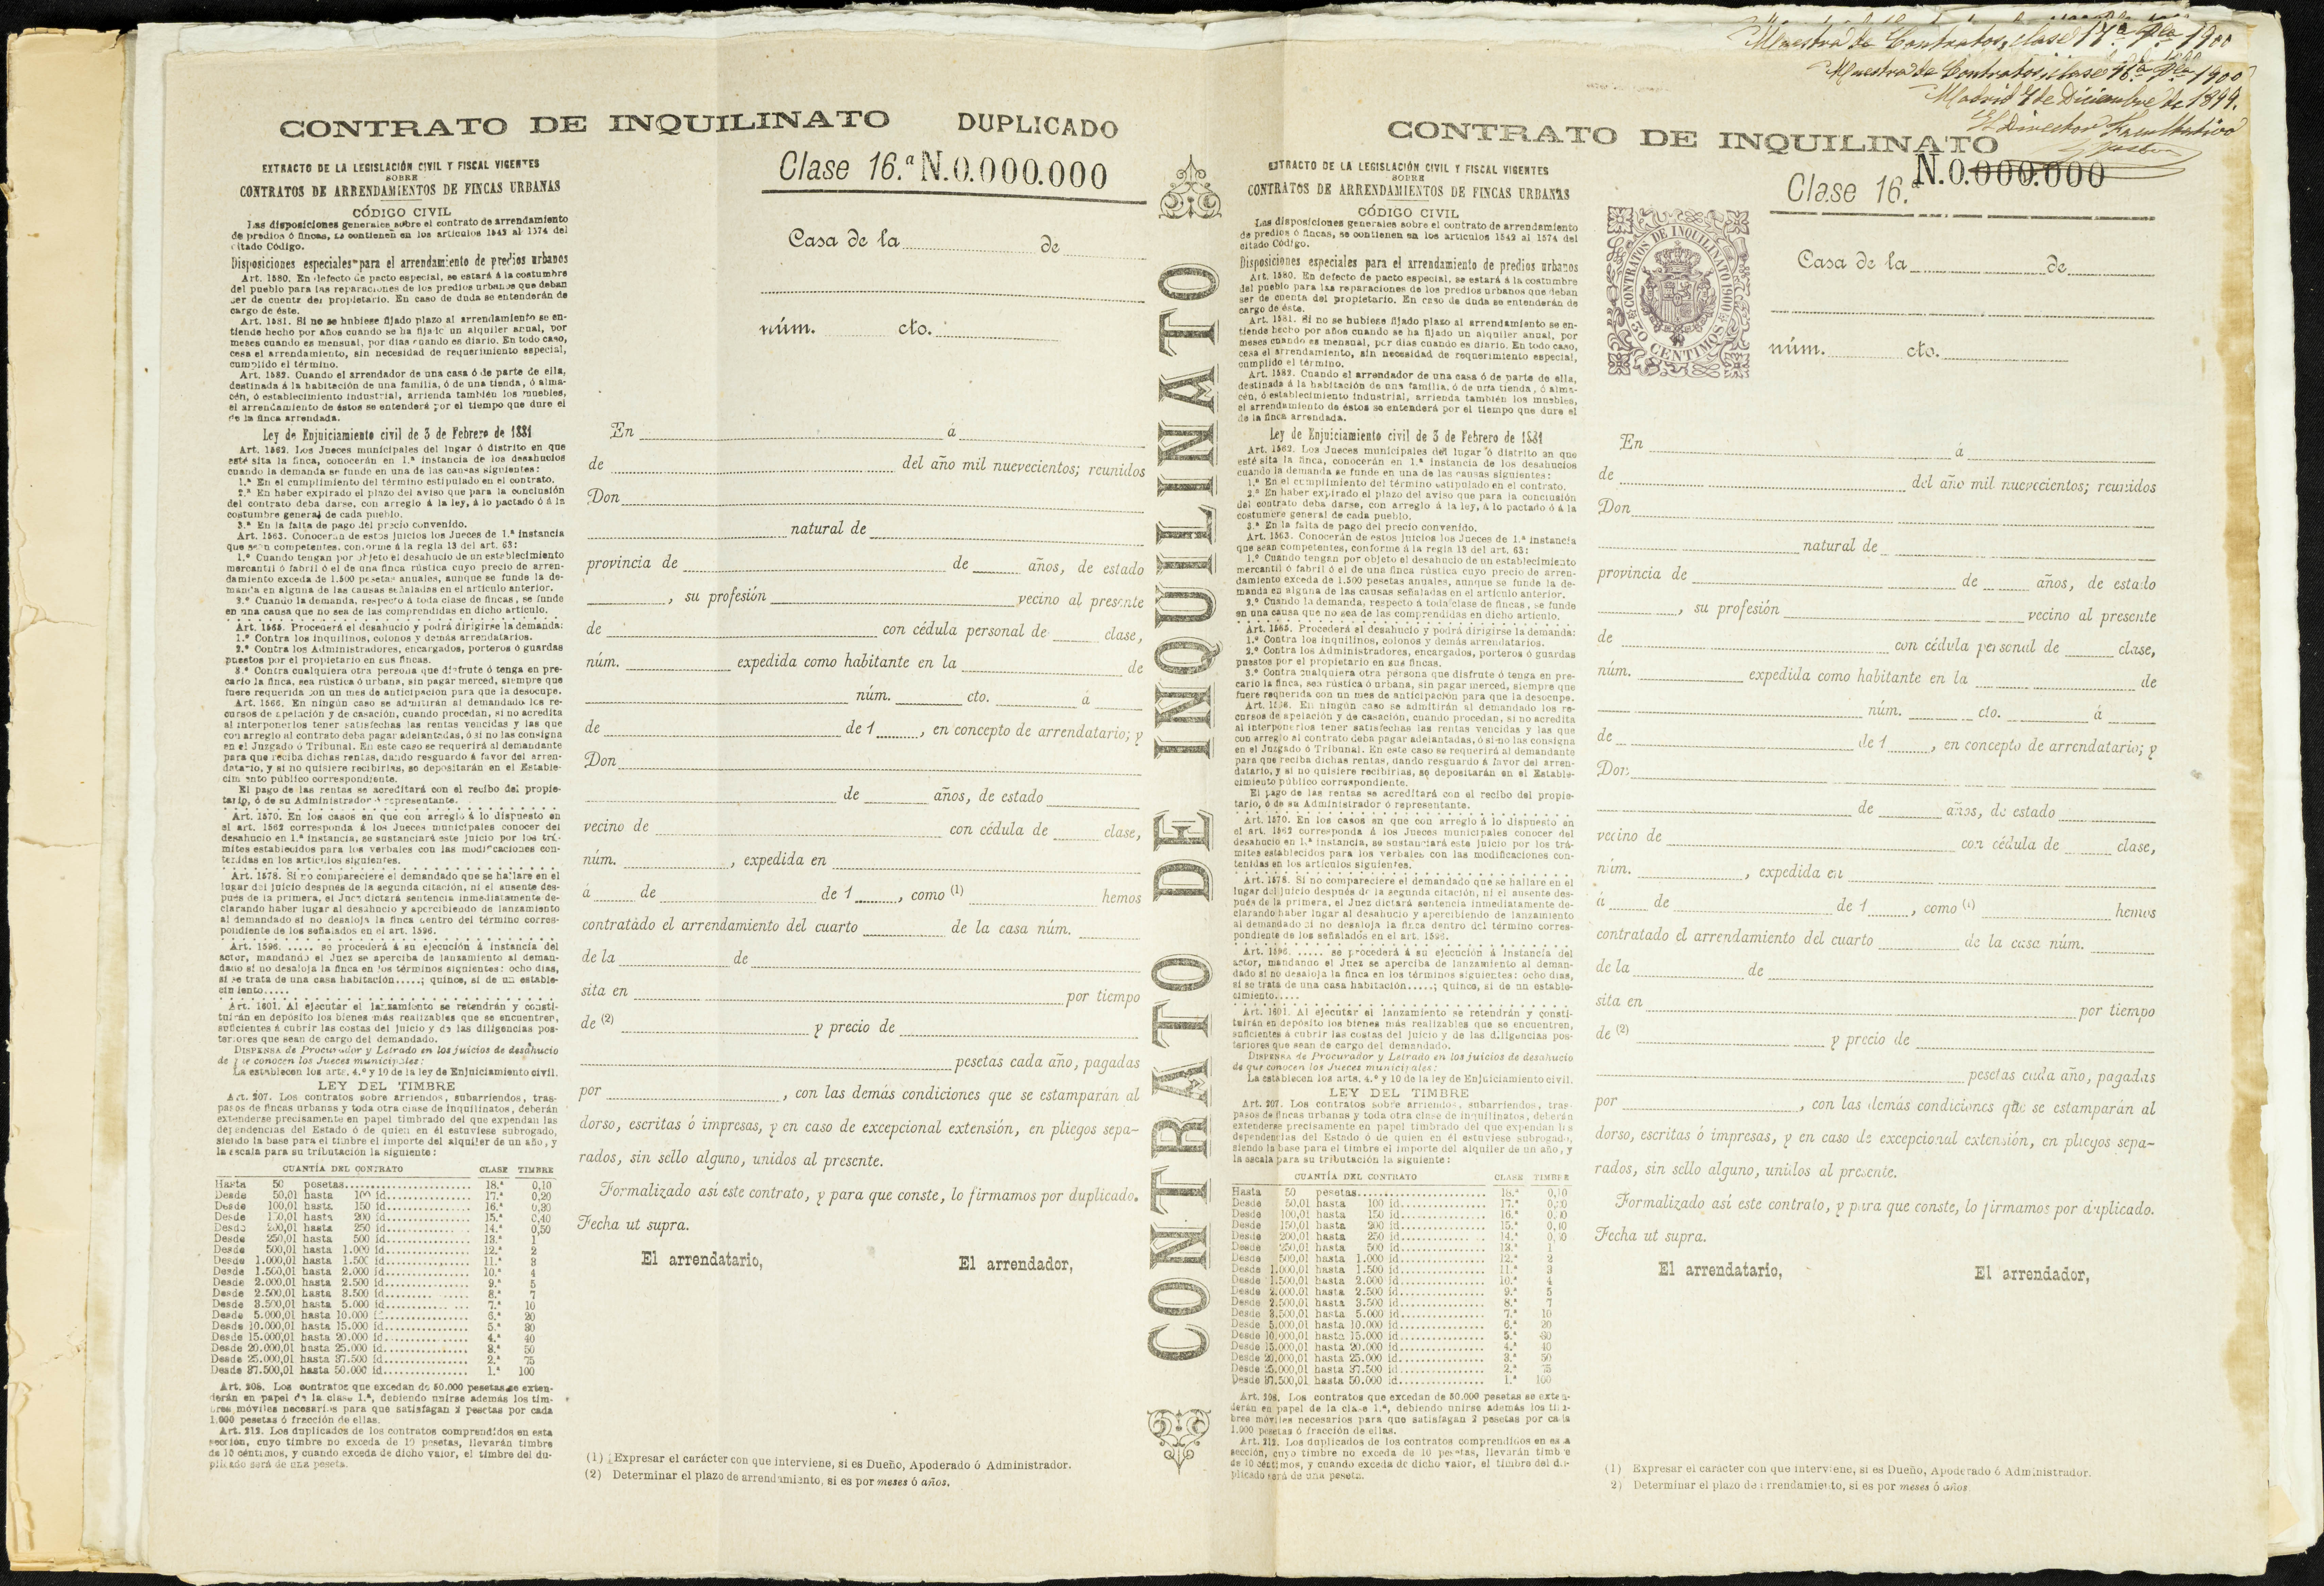 Muestra de Contratos, clase 17ª Pla 1900
Muestra de Contratos, clase 16ª Pla 1900
Madrid 7 de Diciembre de 1899.
El Director Facultativo
CONTRATO DE INQUILINATO DUPLICADO
EXTRACTO DE LA LEGISLACIÓN CIVIL Y FISCAL VIGENTES
SOBRE
CONTRATOS DE ARRENDAMIENTOS DE FINCAS URBANAS
CÓDIGO CIVIL
Las disposiciones generales sobre el contrato de arrendamiento
de predios ó fincas, se contienen en los artículos 1542 al 1574 del
citado Código.
Disposiciones especiales para el arrendamiento de predios urbanos
Art. 1580. En defecto de pacto especial, se estará á la costumbre
del pueblo para las reparaciones de los predios urbanos que deban
ser de cuenta del propietario. En caso de duda se entenderán de
cargo de éste.
Art. 1581. Si no se hubiese fijado plazo al arrendamiento se en-
tiende hecho por años cuando se ha fijado un alquiler anual, por
meses cuando es mensual, por días cuando es diario. En todo caso,
cesa el arrendamiento, sin necesidad de requerimiento especial,
cumplido el término.
Art. 1582. Cuando el arrendador de una casa ó de parte de ella,
destinada á la habitación de una familia, ó de una tienda, ó alma-
cén, ó establecimiento industrial, arrienda también los muebles,
el arrendamiento de éstos se entenderá por el tiempo que dure el
de la finca arrendada.
Ley de Enjuiciamiento civil de 3 de Febrero de 1881
Art. 1562. Los Jueces municipales del lugar ó distrito en que
esté sita la finca, conocerán en 1.ª instancia de los desahucios
cuando la demanda se funde en una de las causas siguientes:
1.ª En el cumplimiento del término estipulado en el contrato.
2.ª En haber expirado el plazo del aviso que para la conclusión
del contrato deba darse, con arreglo á la ley, á lo pactado ó á la
costumbre general de cada pueblo.
3.ª En la falta de pago del precio convenido.
Art. 1563. Conocerán de estos juicios los Jueces de 1.ª instancia
que sean competentes, conforme á la regla 13 del art. 63:
1.º Cuando tengan por objeto el desahucio de un establecimiento
mercantil ó fabril ó el de una finca rústica cuyo precio de arren-
damiento exceda de 1.500 pesetas anuales, aunque se funde la de-
manda en alguna de las causas señaladas en el artículo anterior.
2.º Cuando la demanda, respecto á toda clase de fincas, se funde
en una causa que no sea de las comprendidas en dicho artículo.
Art. 1565. Procederá el desahucio y podrá dirigirse la demanda:
1.º Contra los inquilinos, colonos y demás arrendatarios.
2.º Contra los Administradores, encargados, porteros ó guardas
puestos por el propietario en sus fincas.
3.º Contra cualquiera otra persona que disfrute ó tenga en pre-
cario la finca, sea rústica ó urbana, sin pagar merced, siempre que
fuere requerida con un mes de anticipación para que la desocupe.
Art. 1566. En ningún caso se admitirán al demandado los re-
cursos de apelación y de casación, cuando procedan, si no acredita
al interponerlos tener satisfechas las rentas vencidas y las que
con arreglo al contrato deba pagar adelantadas, ó si no las consigna
en el Juzgado ó Tribunal. En este caso se requerirá al demandante
para que reciba dichas rentas, dando resguardo á favor del arren-
datario, y si no quisiere recibirlas, se depositarán en el Estable-
cimiento público correspondiente.
El pago de las rentas se acreditará con el recibo del propie-
tario, ó de su Administrador ó representante.
Art. 1570. En los casos en que con arreglo á lo dispuesto en
el art. 1562 corresponda á los Jueces municipales conocer del
desahucio en 1.ª instancia, se sustanciará este juicio por los trá-
mites establecidos para los verbales con las modificaciones con-
tenidas en los artículos siguientes.
Art. 1578. Si no compareciere el demandado que se hallare en el
lugar del juicio después de la segunda citación, ni el ausente des-
pués de la primera, el Juez dictará sentencia inmediatamente de-
clarando haber lugar al desahucio y apercibiendo de lanzamiento
al demandado si no desaloja la finca dentro del término corres-
pondiente de los señalados en el art. 1596.
Art. 1596. ..... se procederá á su ejecución á instancia del
actor, mandando el Juez se aperciba de lanzamiento al deman-
dado si no desaloja la finca en los términos siguientes: ocho días,
si se trata de una casa habitación.....; quince, si de un estable-
cimiento.....
Art. 1601. Al ejecutar el lanzamiento se retendrán y consti-
tuirán en depósito los bienes más realizables que se encuentren,
suficientes á cubrir las costas del juicio y de las diligencias pos-
teriores que sean de cargo del demandado.
DISPENSA de Procurador y Letrado en los juicios de desahucio
de que conocen los Jueces municipales:
La establecen los arts. 4.º y 10 de la ley de Enjuiciamiento civil.
LEY DEL TIMBRE
Art. 207. Los contratos sobre arriendos, subarriendos, tras-
pasos de fincas urbanas y toda otra clase de inquilinatos, deberán
extenderse precisamente en papel timbrado del que expendan las
dependencias del Estado ó de quien en él estuviese subrogado,
siendo la base para el timbre el importe del alquiler de un año, y
la escala para su tributación la siguiente:
CUANTÍA DEL CONTRATO CLASE TIMBRE
Hasta 50 pesetas 18.ª 0,10
Desde 50,01 hasta 100 id. 17.ª 0,20
Desde 100,01 hasta 150 id. 16.ª 0,30
Desde 150,01 hasta 200 id. 15.ª 0,40
Desde 200,01 hasta 250 id. 14.ª 0,50
Desde 250,01 hasta 500 id. 13.ª 1
Desde 500,01 hasta 1.000 id. 12.ª 2
Desde 1.000,01 hasta 1.500 id. 11.ª 3
Desde 1.500,01 hasta 2.000 id. 10.ª 4
Desde 2.000,01 hasta 2.500 id. 9.ª 5
Desde 2.500,01 hasta 3.500 id. 8.ª 7
Desde 3.500,01 hasta 5.000 id. 7.ª 10
Desde 5.000,01 hasta 10.000 id. 6.ª 20
Desde 10.000,01 hasta 15.000 id. 5.ª 30
Desde 15.000,01 hasta 20.000 id. 4.ª 40
Desde 20.000,01 hasta 25.000 id. 3.ª 50
Desde 25.000,01 hasta 37.500 id. 2.ª 75
Desde 37.500,01 hasta 50.000 id. 1.ª 100
Art. 208. Los contratos que excedan de 50.000 pesetas se exten-
derán en papel de la clase 1.ª, debiendo unirse además los tim-
bres móviles necesarios para que satisfagan 2 pesetas por cada
1.000 pesetas ó fracción de ellas.
Art. 212. Los duplicados de los contratos comprendidos en esta
sección, cuyo timbre no exceda de 10 pesetas, llevarán timbre
de 10 céntimos, y cuando exceda de dicho valor, el timbre del du-
plicado será de una peseta.
Clase 16.ª N.0.000.000
Casa de la de
núm. cto.
En á
de del año mil nuevecientos; reunidos
Don
natural de
provincia de de años, de estado
, su profesión vecino al presente
de con cédula personal de clase,
núm. expedida como habitante en la de
núm. cto. á
de de 1 , en concepto de arrendatario; y
Don
de años, de estado
vecino de con cédula de clase,
núm. , expedida en
á de de 1 , como (1) hemos
contratado el arrendamiento del cuarto de la casa núm.
de la de
sita en por tiempo
de (2) y precio de
pesetas cada año, pagadas
por , con las demás condiciones que se estamparán al
dorso, escritas ó impresas, y en caso de excepcional extensión, en pliegos sepa-
rados, sin sello alguno, unidos al presente.
Formalizado así este contrato, y para que conste, lo firmamos por duplicado.
Fecha ut supra.
El arrendatario, El arrendador,
(1) Expresar el carácter con que interviene, si es Dueño, Apoderado ó Administrador.
(2) Determinar el plazo de arrendamiento, si es por meses ó años.
CONTRATO DE INQUILINATO
CONTRATO DE INQUILINATO
EXTRACTO DE LA LEGISLACIÓN CIVIL Y FISCAL VIGENTES
SOBRE
CONTRATOS DE ARRENDAMIENTOS DE FINCAS URBANAS
CÓDIGO CIVIL
Las disposiciones generales sobre el contrato de arrendamiento
de predios ó fincas, se contienen en los artículos 1542 al 1574 del
citado Código.
Disposiciones especiales para el arrendamiento de predios urbanos
Art. 1580. En defecto de pacto especial, se estará á la costumbre
del pueblo para las reparaciones de los predios urbanos que deban
ser de cuenta del propietario. En caso de duda se entenderán de
cargo de éste.
Art. 1581. Si no se hubiese fijado plazo al arrendamiento se en-
tiende hecho por años cuando se ha fijado un alquiler anual, por
meses cuando es mensual, por días cuando es diario. En todo caso,
cesa el arrendamiento, sin necesidad de requerimiento especial,
cumplido el término.
Art. 1582. Cuando el arrendador de una casa ó de parte de ella,
destinada á la habitación de una familia, ó de una tienda, ó alma-
cén, ó establecimiento industrial, arrienda también los muebles,
el arrendamiento de éstos se entenderá por el tiempo que dure el
de la finca arrendada.
Ley de Enjuiciamiento civil de 3 de Febrero de 1881
Art. 1562. Los Jueces municipales del lugar ó distrito en que
esté sita la finca, conocerán en 1.ª instancia de los desahucios
cuando la demanda se funde en una de las causas siguientes:
1.ª En el cumplimiento del término estipulado en el contrato.
2.ª En haber expirado el plazo del aviso que para la conclusión
del contrato deba darse, con arreglo á la ley, á lo pactado ó á la
costumbre general de cada pueblo.
3.ª En la falta de pago del precio convenido.
Art. 1563. Conocerán de estos juicios los Jueces de 1.ª instancia
que sean competentes, conforme á la regla 13 del art. 63:
1.º Cuando tengan por objeto el desahucio de un establecimiento
mercantil ó fabril ó el de una finca rústica cuyo precio de arren-
damiento exceda de 1.500 pesetas anuales, aunque se funde la de-
manda en alguna de las causas señaladas en el artículo anterior.
2.º Cuando la demanda, respecto á toda clase de fincas, se funde
en una causa que no sea de las comprendidas en dicho artículo.
Art. 1565. Procederá el desahucio y podrá dirigirse la demanda:
1.º Contra los inquilinos, colonos y demás arrendatarios.
2.º Contra los Administradores, encargados, porteros ó guardas
puestos por el propietario en sus fincas.
3.º Contra cualquiera otra persona que disfrute ó tenga en pre-
cario la finca, sea rústica ó urbana, sin pagar merced, siempre que
fuere requerida con un mes de anticipación para que la desocupe.
Art. 1566. En ningún caso se admitirán al demandado los re-
cursos de apelación y de casación, cuando procedan, si no acredita
al interponerlos tener satisfechas las rentas vencidas y las que
con arreglo al contrato deba pagar adelantadas, ó si no las consigna
en el Juzgado ó Tribunal. En este caso se requerirá al demandante
para que reciba dichas rentas, dando resguardo á favor del arren-
datario, y si no quisiere recibirlas, se depositarán en el Estable-
cimiento público correspondiente.
El pago de las rentas se acreditará con el recibo del propie-
tario, ó de su Administrador ó representante.
Art. 1570. En los casos en que con arreglo á lo dispuesto en
el art. 1562 corresponda á los Jueces municipales conocer del
desahucio en 1.ª instancia, se sustanciará este juicio por los trá-
mites establecidos para los verbales con las modificaciones con-
tenidas en los artículos siguientes.
Art. 1578. Si no compareciere el demandado que se hallare en el
lugar del juicio después de la segunda citación, ni el ausente des-
pués de la primera, el Juez dictará sentencia inmediatamente de-
clarando haber lugar al desahucio y apercibiendo de lanzamiento
al demandado si no desaloja la finca dentro del término corres-
pondiente de los señalados en el art. 1596.
Art. 1596. ..... se procederá á su ejecución á instancia del
actor, mandando el Juez se aperciba de lanzamiento al deman-
dado si no desaloja la finca en los términos siguientes: ocho días,
si se trata de una casa habitación.....; quince, si de un estable-
cimiento.....
Art. 1601. Al ejecutar el lanzamiento se retendrán y consti-
tuirán en depósito los bienes más realizables que se encuentren,
suficientes á cubrir las costas del juicio y de las diligencias pos-
teriores que sean de cargo del demandado.
DISPENSA de Procurador y Letrado en los juicios de desahucio
de que conocen los Jueces municipales:
La establecen los arts. 4.º y 10 de la ley de Enjuiciamiento civil.
LEY DEL TIMBRE
Art. 207. Los contratos sobre arriendos, subarriendos, tras-
pasos de fincas urbanas y toda otra clase de inquilinatos, deberán
extenderse precisamente en papel timbrado del que expendan las
dependencias del Estado ó de quien en él estuviese subrogado,
siendo la base para el timbre el importe del alquiler de un año, y
la escala para su tributación la siguiente:
CUANTÍA DEL CONTRATO CLASE TIMBRE
Hasta 50 pesetas 18.ª 0,10
Desde 50,01 hasta 100 id. 17.ª
Desde 100,01 hasta 150 id. 16.ª
Desde 150,01 hasta 200 id. 15.ª
Desde 200,01 hasta 250 id. 14.ª
Desde 250,01 hasta 500 id. 13.ª 1
Desde 500,01 hasta 1.000 id. 12.ª 2
Desde 1.000,01 hasta 1.500 id. 11.ª 3
Desde 1.500,01 hasta 2.000 id. 10.ª 4
Desde 2.000,01 hasta 2.500 id. 9.ª 5
Desde 2.500,01 hasta 3.500 id. 8.ª 7
Desde 3.500,01 hasta 5.000 id. 7.ª 10
Desde 5.000,01 hasta 10.000 id. 6.ª 20
Desde 10.000,01 hasta 15.000 id. 5.ª 30
Desde 15.000,01 hasta 20.000 id. 4.ª 40
Desde 20.000,01 hasta 25.000 id. 3.ª 50
Desde 25.000,01 hasta 37.500 id. 2.ª 75
Desde 37.500,01 hasta 50.000 id. 1.ª 100
Art. 208. Los contratos que excedan de 50.000 pesetas se exten-
derán en papel de la clase 1.ª, debiendo unirse además los tim-
bres móviles necesarios para que satisfagan 2 pesetas por cada
1.000 pesetas ó fracción de ellas.
Art. 212. Los duplicados de los contratos comprendidos en esta
sección, cuyo timbre no exceda de 10 pesetas, llevarán timbre
de 10 céntimos, y cuando exceda de dicho valor, el timbre del du-
plicado será de una peseta.
Clase 16.ª N.0.000.000
CONTRATOS DE INQUILINATO 1900
30 CENTIMOS
Casa de la de
núm. cto.
En á
de del año mil nuevecientos; reunidos
Don
natural de
provincia de de años, de estado
, su profesión vecino al presente
de con cédula personal de clase,
núm. expedida como habitante en la de
núm. cto. á
de de 1 , en concepto de arrendatario; y
Don
de años, de estado
vecino de con cédula de clase,
núm. , expedida en
á de de 1 , como (1) hemos
contratado el arrendamiento del cuarto de la casa núm.
de la de
sita en por tiempo
de (2) y precio de
pesetas cada año, pagadas
por , con las demás condiciones que se estamparán al
dorso, escritas ó impresas, y en caso de excepcional extensión, en pliegos sepa-
rados, sin sello alguno, unidos al presente.
Formalizado así este contrato, y para que conste, lo firmamos por duplicado.
Fecha ut supra.
El arrendatario, El arrendador,
(1) Expresar el carácter con que interviene, si es Dueño, Apoderado ó Administrador.
2) Determinar el plazo de arrendamiento, si es por meses ó años